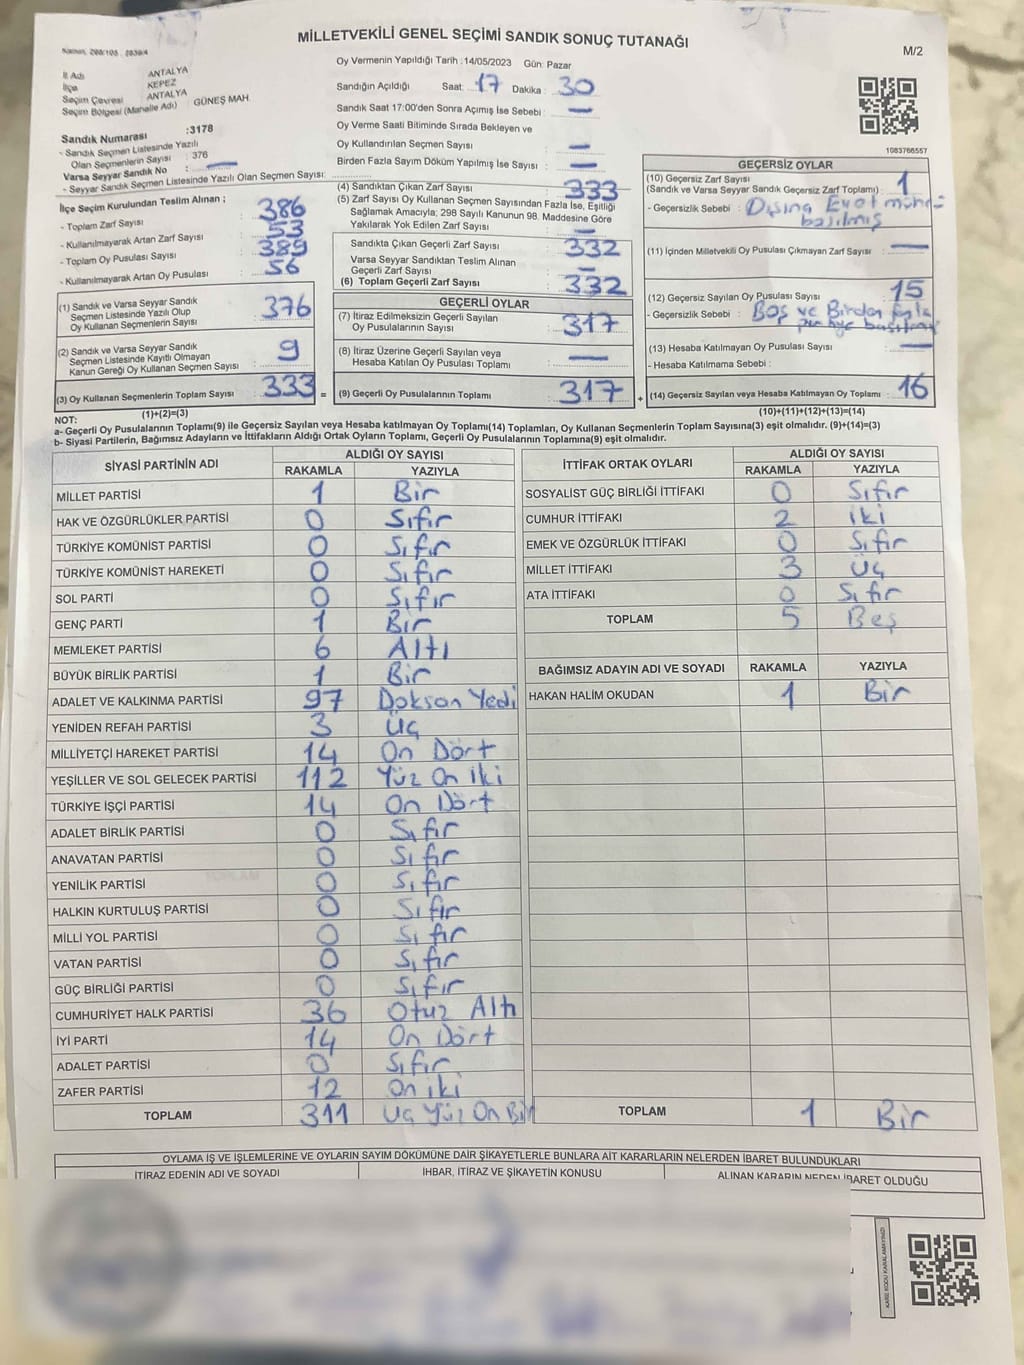 MİLLETVEKİLİ GENEL SEÇİMİ SANDIK SONUÇ TUTANAĞI
M/2
İl Adı ANTALYA
İlçe KEPEZ
Seçim Çevresi ANTALYA
Seçim Bölgesi (Mahalle Adı) GÜNEŞ MAH.
Sandık Numarası :3178
- Sandık Seçmen Listesinde Yazılı
Olan Seçmenlerin Sayısı : 376
Varsa Seyyar Sandık No : —
- Seyyar Sandık Seçmen Listesinde Yazılı Olan Seçmen Sayısı:
Oy Vermenin Yapıldığı Tarih :14/05/2023 Gün: Pazar
Sandığın Açıldığı Saat: 17 Dakika : 30
Sandık Saat 17:00'den Sonra Açımış İse Sebebi : —
Oy Verme Saati Bitiminde Sırada Bekleyen ve
Oy Kullandırılan Seçmen Sayısı : —
Birden Fazla Sayım Döküm Yapılmış İse Sayısı : —
1083766557
İlçe Seçim Kurulundan Teslim Alınan ;
- Toplam Zarf Sayısı : 386
- Kullanılmayarak Artan Zarf Sayısı : 53
- Toplam Oy Pusulası Sayısı : 389
- Kullanılmayarak Artan Oy Pusulası : 56
(1) Sandık ve Varsa Seyyar Sandık
Seçmen Listesinde Yazılı Olup
Oy Kullanan Seçmenlerin Sayısı : 376
(2) Sandık ve Varsa Seyyar Sandık
Seçmen Listesinde Kayıtlı Olmayan
Kanun Gereği Oy Kullanan Seçmen Sayısı : 9
(3) Oy Kullanan Seçmenlerin Toplam Sayısı : 333 =
(1)+(2)=(3)
(4) Sandıktan Çıkan Zarf Sayısı : 333
(5) Zarf Sayısı Oy Kullanan Seçmen Sayısından Fazla İse, Eşitliği
Sağlamak Amacıyla; 298 Sayılı Kanunun 98. Maddesine Göre
Yakılarak Yok Edilen Zarf Sayısı : —
Sandıkta Çıkan Geçerli Zarf Sayısı : 332
Varsa Seyyar Sandıktan Teslim Alınan
Geçerli Zarf Sayısı : —
(6) Toplam Geçerli Zarf Sayısı : 332
GEÇERLİ OYLAR
(7) İtiraz Edilmeksizin Geçerli Sayılan
Oy Pusulalarının Sayısı : 317
(8) İtiraz Üzerine Geçerli Sayılan veya
Hesaba Katılan Oy Pusulası Toplamı : —
(9) Geçerli Oy Pusulalarının Toplamı : 317 +
GEÇERSİZ OYLAR
(10) Geçersiz Zarf Sayısı
(Sandık ve Varsa Seyyar Sandık Geçersiz Zarf Toplamı) : 1
- Geçersizlik Sebebi : Dışına Evet
basılmış
(11) İçinden Milletvekili Oy Pusulası Çıkmayan Zarf Sayısı : —
(12) Geçersiz Sayılan Oy Pusulası Sayısı : 15
- Geçersizlik Sebebi : Boş ve Birden fazla
(13) Hesaba Katılmayan Oy Pusulası Sayısı : —
- Hesaba Katılmama Sebebi :
(14) Geçersiz Sayılan veya Hesaba Katılmayan Oy Toplamı : 16
(10)+(11)+(12)+(13)=(14)
NOT:
a- Geçerli Oy Pusulalarının Toplamı(9) ile Geçersiz Sayılan veya Hesaba katılmayan Oy Toplamı(14) Toplamları, Oy Kullanan Seçmenlerin Toplam Sayısına(3) eşit olmalıdır. (9)+(14)=(3)
b- Siyasi Partilerin, Bağımsız Adayların ve İttifakların Aldığı Ortak Oyların Toplamı, Geçerli Oy Pusulalarının Toplamına(9) eşit olmalıdır.
SİYASİ PARTİNİN ADI ALDIĞI OY SAYISI
RAKAMLA YAZIYLA
MİLLET PARTİSİ 1 Bir
HAK VE ÖZGÜRLÜKLER PARTİSİ 0 Sıfır
TÜRKİYE KOMÜNİST PARTİSİ 0 Sıfır
TÜRKİYE KOMÜNİST HAREKETİ 0 Sıfır
SOL PARTİ 0 Sıfır
GENÇ PARTİ 1 Bir
MEMLEKET PARTİSİ 6 Altı
BÜYÜK BİRLİK PARTİSİ 1 Bir
ADALET VE KALKINMA PARTİSİ 97 Doksan Yedi
YENİDEN REFAH PARTİSİ 3 Üç
MİLLİYETÇİ HAREKET PARTİSİ 14 On Dört
YEŞİLLER VE SOL GELECEK PARTİSİ 112 Yüz On iki
TÜRKİYE İŞÇİ PARTİSİ 14 On Dört
ADALET BİRLİK PARTİSİ 0 Sıfır
ANAVATAN PARTİSİ 0 Sıfır
YENİLİK PARTİSİ 0 Sıfır
HALKIN KURTULUŞ PARTİSİ 0 Sıfır
MİLLİ YOL PARTİSİ 0 Sıfır
VATAN PARTİSİ 0 Sıfır
GÜÇ BİRLİĞİ PARTİSİ 0 Sıfır
CUMHURİYET HALK PARTİSİ 36 Otuz Altı
İYİ PARTİ 14 On Dört
ADALET PARTİSİ 0 Sıfır
ZAFER PARTİSİ 12 On iki
TOPLAM 311 Üç Yüz On Bir
İTTİFAK ORTAK OYLARI ALDIĞI OY SAYISI
RAKAMLA YAZIYLA
SOSYALİST GÜÇ BİRLİĞİ İTTİFAKI 0 Sıfır
CUMHUR İTTİFAKI 2 iki
EMEK VE ÖZGÜRLÜK İTTİFAKI 0 Sıfır
MİLLET İTTİFAKI 3 Üç
ATA İTTİFAKI 0 Sıfır
TOPLAM 5 Beş
BAĞIMSIZ ADAYIN ADI VE SOYADI RAKAMLA YAZIYLA
HAKAN HALİM OKUDAN 1 Bir
TOPLAM 1 Bir
OYLAMA İŞ VE İŞLEMLERİNE VE OYLARIN SAYIM DÖKÜMÜNE DAİR ŞİKAYETLERLE BUNLARA AİT KARARLARIN NELERDEN İBARET BULUNDUKLARI
İTİRAZ EDENİN ADI VE SOYADI İHBAR, İTİRAZ VE ŞİKAYETİN KONUSU ALINAN KARARIN NEDEN İBARET OLDUĞU
KARE KODU KARALAMAYINIZ!